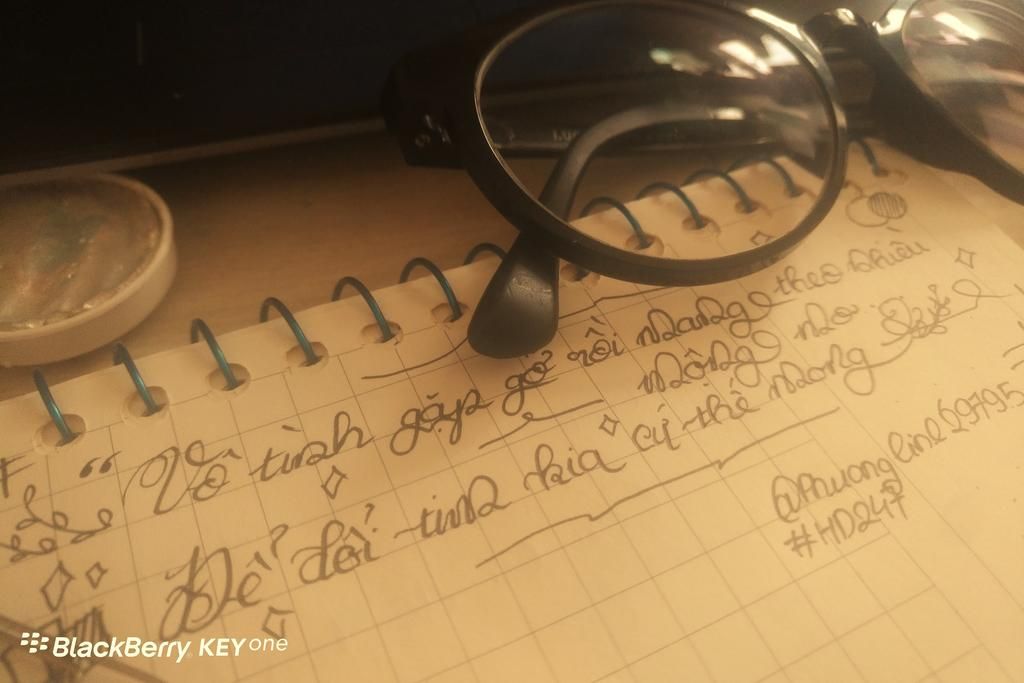 “ Vô tình gặp gỡ rồi mang theo nhiều
mộng mơ
Để đổi tim kia cứ thế mong
@Phuonglinh69795
#HD247
BlackBerry KEYone